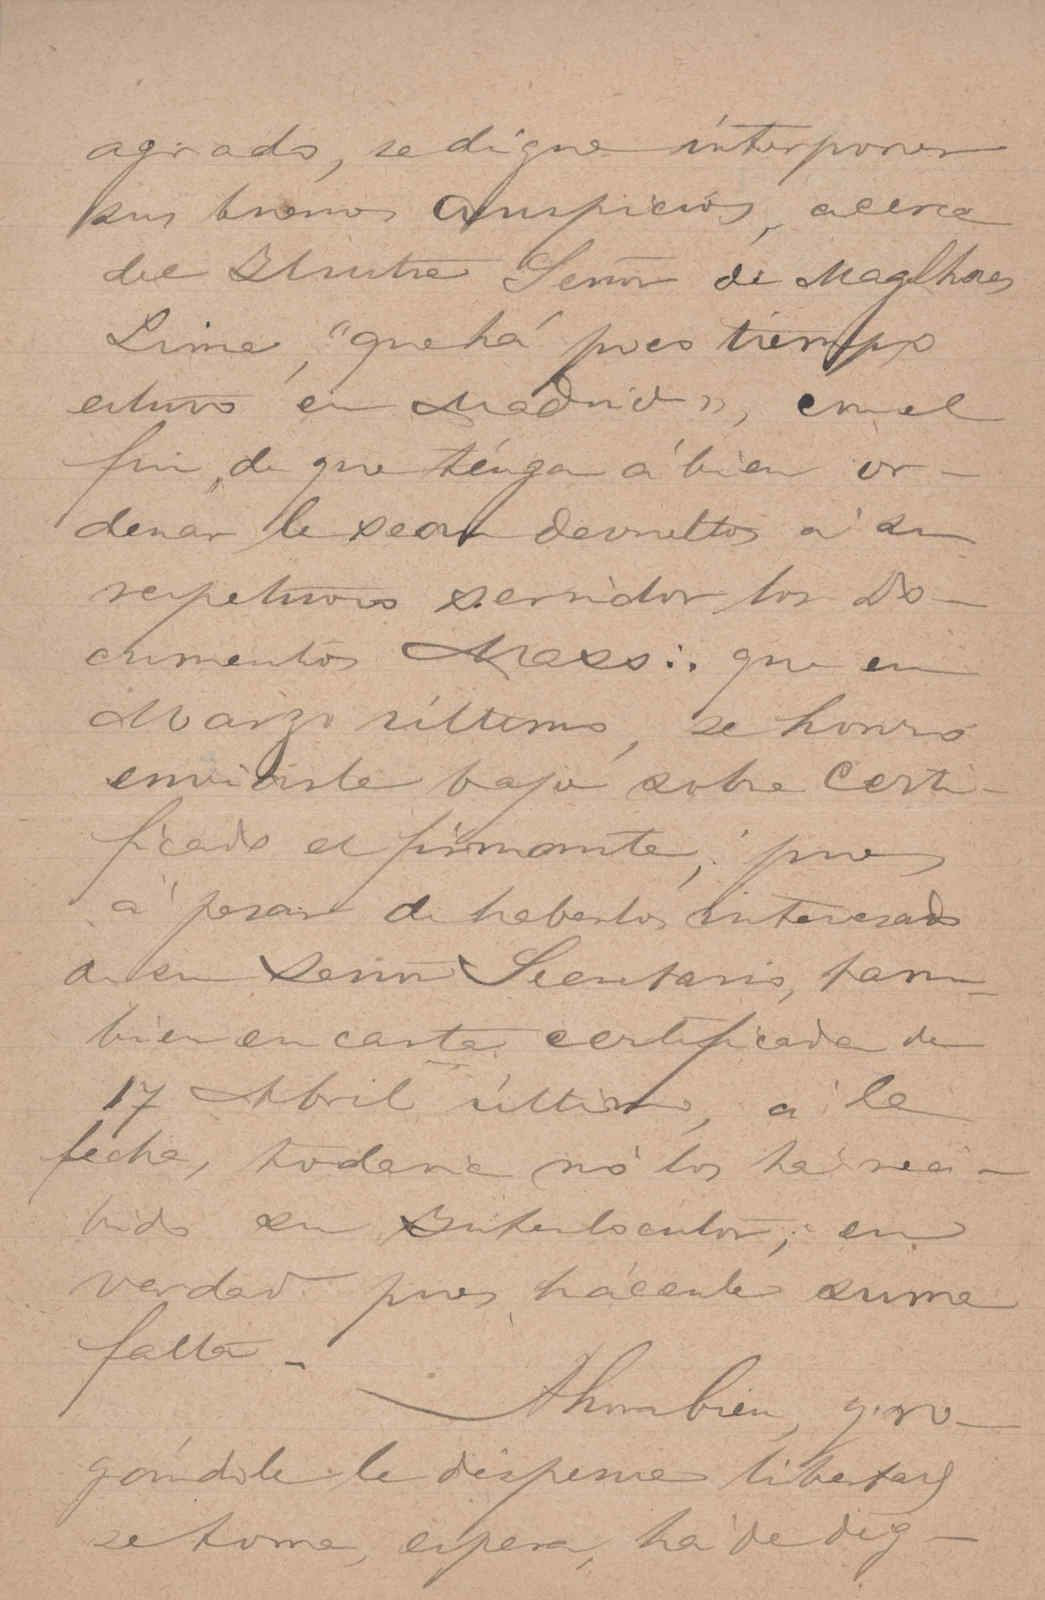 agrado, se digne interponer
sus buenos auspicios, acerca
del Ilustre Señor de Magalhaes
Lima, "que há poco tiempo
estuvo en Madrid", con el
fin, de que ténga á bien or-
denar le sean devueltos á su
respetuoso servidor los do-
cumentos Mass∴ que en
Marzo último, se honró
enviarle bajo sobre Certi-
ficado el firmante, pues
á pesar de haberlos interesado
de su Señor Secretario, tam-
bien en carta certificada de
17 Abril último, á la
fecha, todavia nó los ha reci-
bido su Interlocutor; en
verdad pues hácenle suma
falta -
Ahora bien, y ro-
gándole le dispense libertad
se toma, espera, ha de dig-